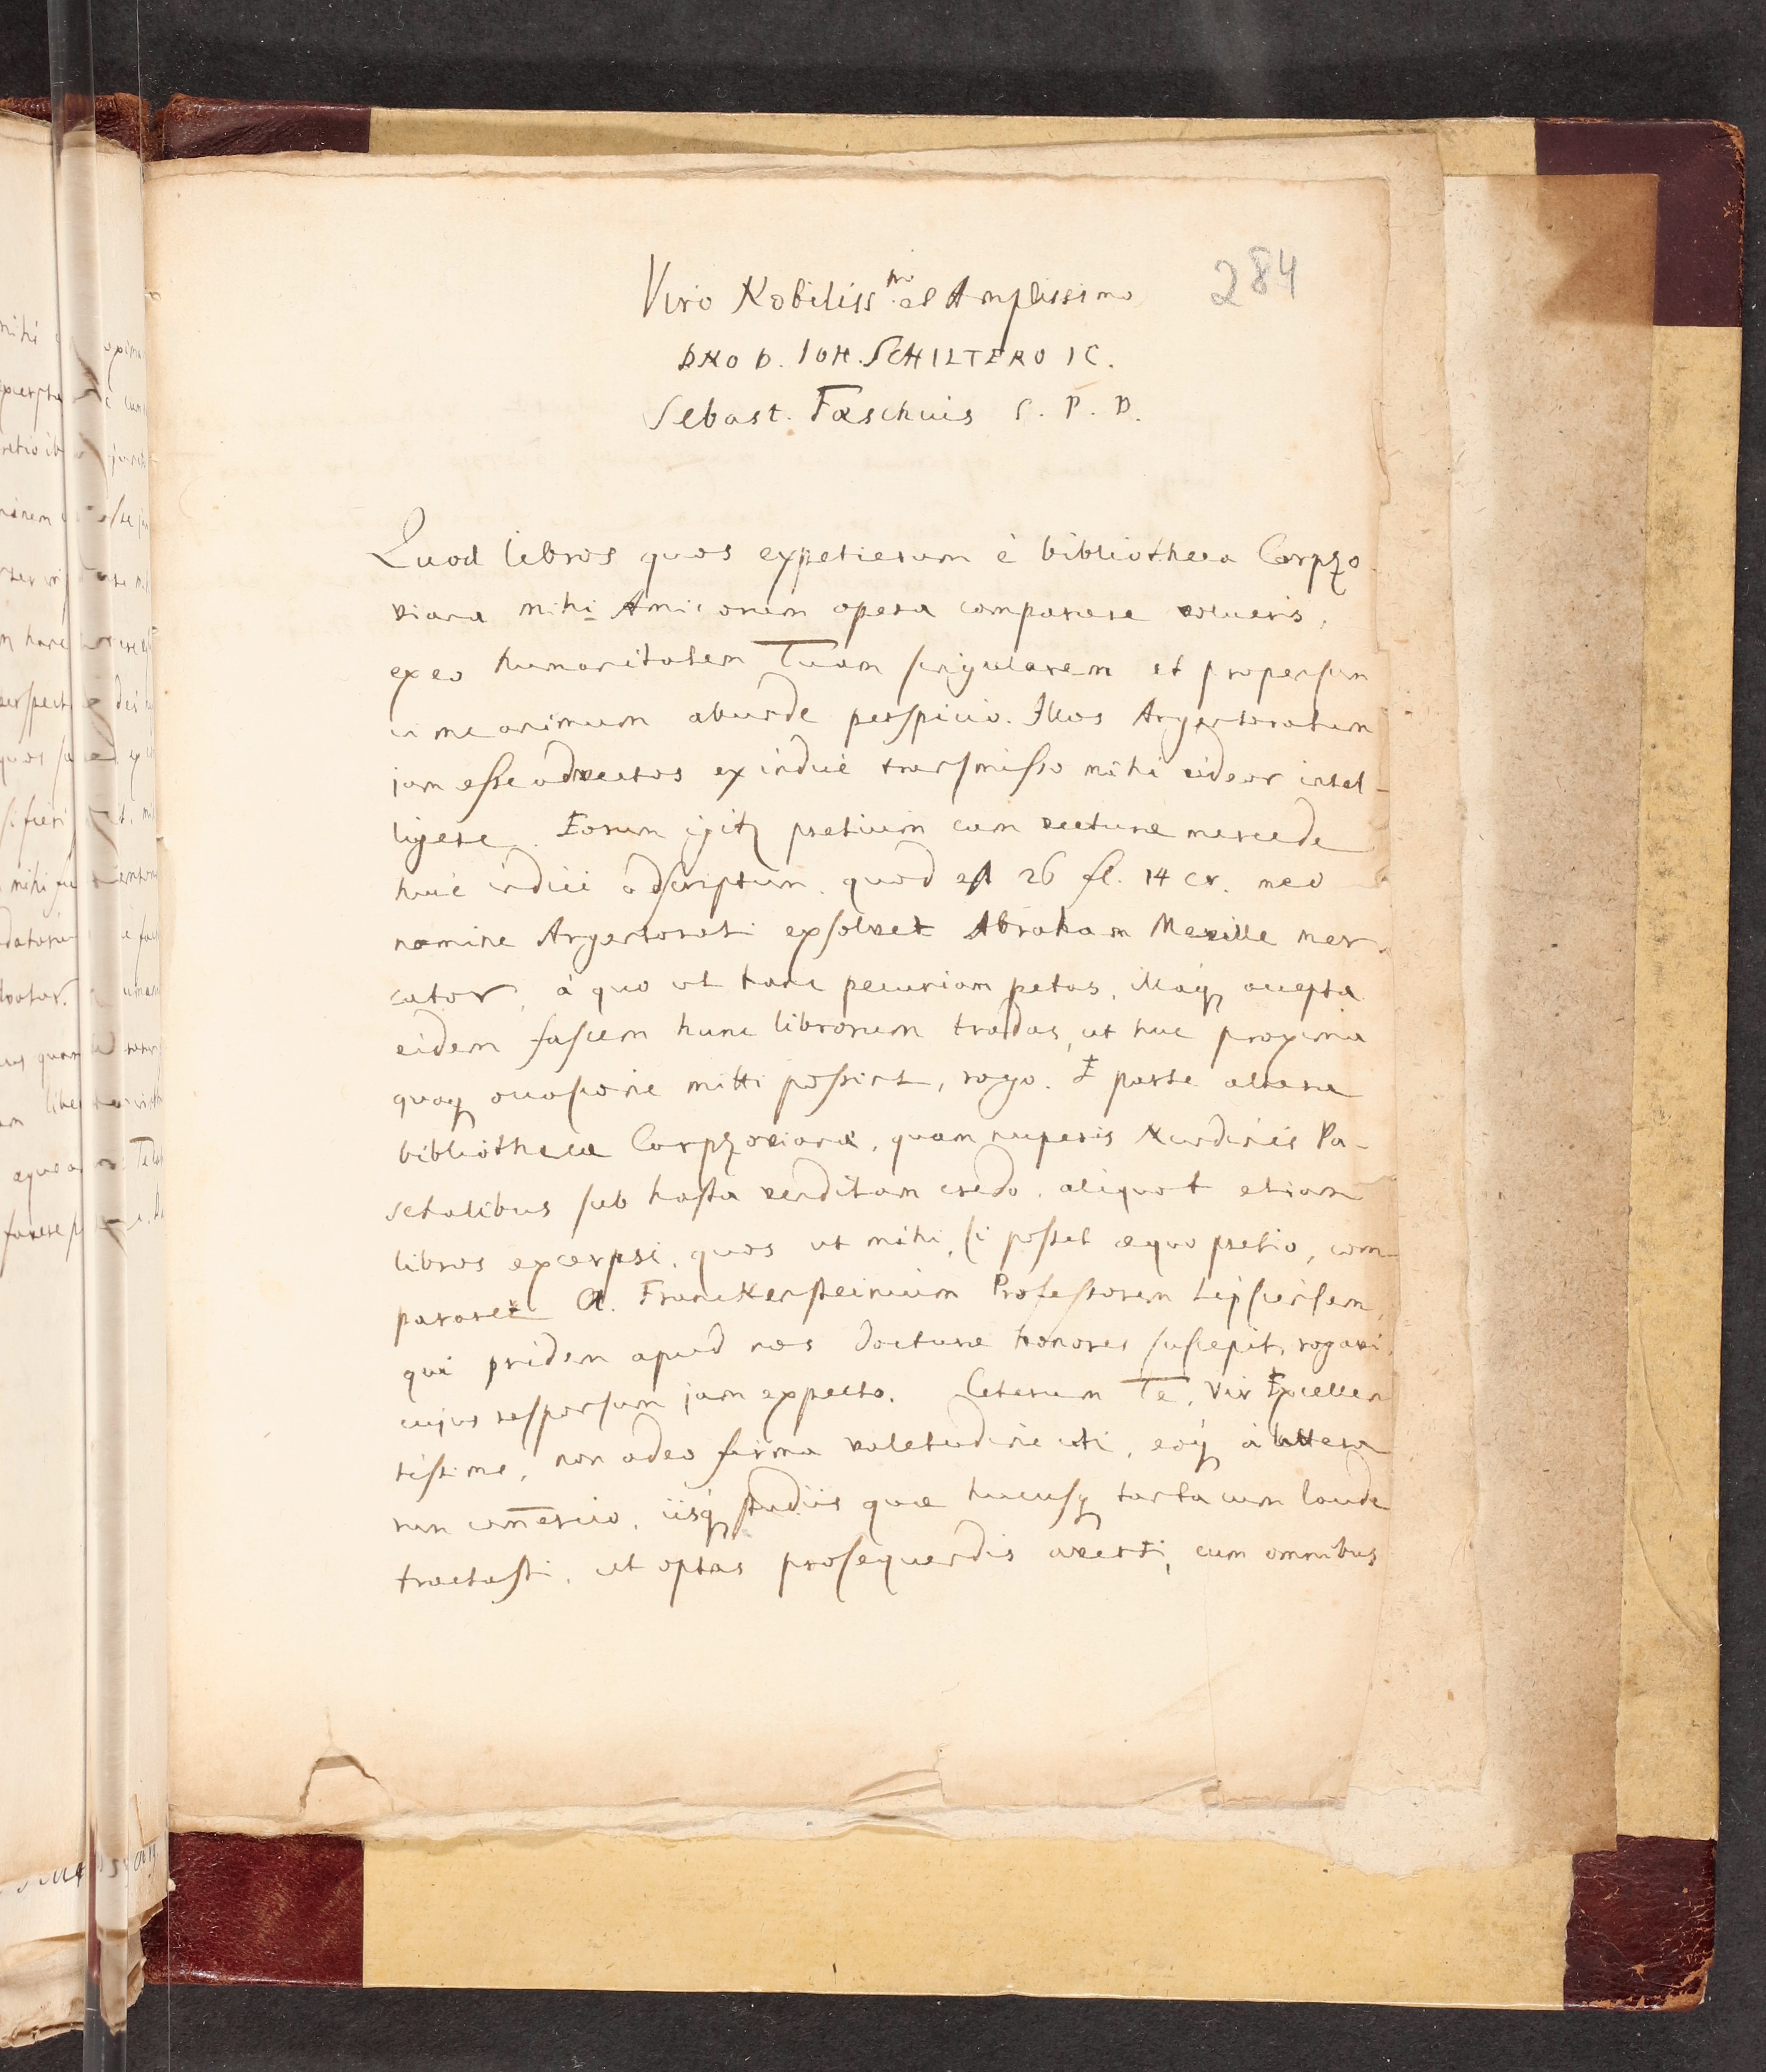 284
Viro Nobiliss.mo et Amplissimo
DNO D. IOH. SCHILTERO IC.
Sebast. Fæschius S. P. D.
Quod libros quos expetieram è bibliotheca Carpzo
viana mihi Amicorum opera comparare volueris,
ex eo humanitatem Tuam singularem et propensum
in me animum abunde perspicio. Illos Argentoratum
jam esse advectos ex indice transmisso mihi videor intel-
ligere. Eorum igitꝫ pretium cum vecturæ mercede
huic indici adscriptum, quod est 26 fl. 14 cr. meo
nomine Argentorati exsolvet Abraham Meville mer-
cator, à quo ut hanc pecuniam petas, illaqꝫ accepta
eidem fascem hunc librorum tradas, ut huc proxima
quaqꝫ occasione mitti possint, rogo. E parte altera
bibliothecæ Carpzovianæ, quam nuperis Nundinis Pa-
schalibus sub hasta venditam credo, aliquot etiam
libros excerpsi, quos ut mihi, si posset æquo pretio, com-
pararet Cl. Franckensteinium Professorem Lipsiensem,
qui pridem apud nos docturæ honores suscepit, rogavi,
cujus responsum jam expecto. Ceterum Te, Vir Excellen
tissime, non adeo firma valetudine uti, eoqꝫ à littera
rum com̄ercio, iisqꝫ studiis quæ hucusqꝫ tanta cum laude
tractasti, ut optas prosequendis averti, cum omnibus